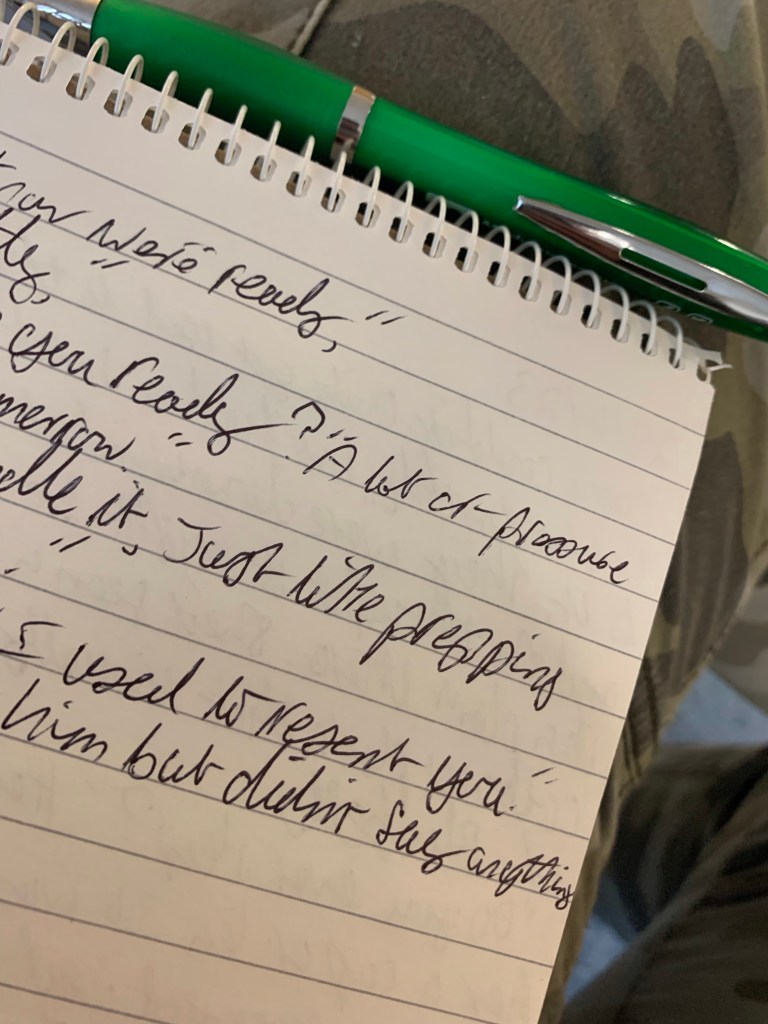 know we're ready,"
you ready?" "A lot of pressure
it. Just like prepping
"I used to resent you."
him but didn't say anything